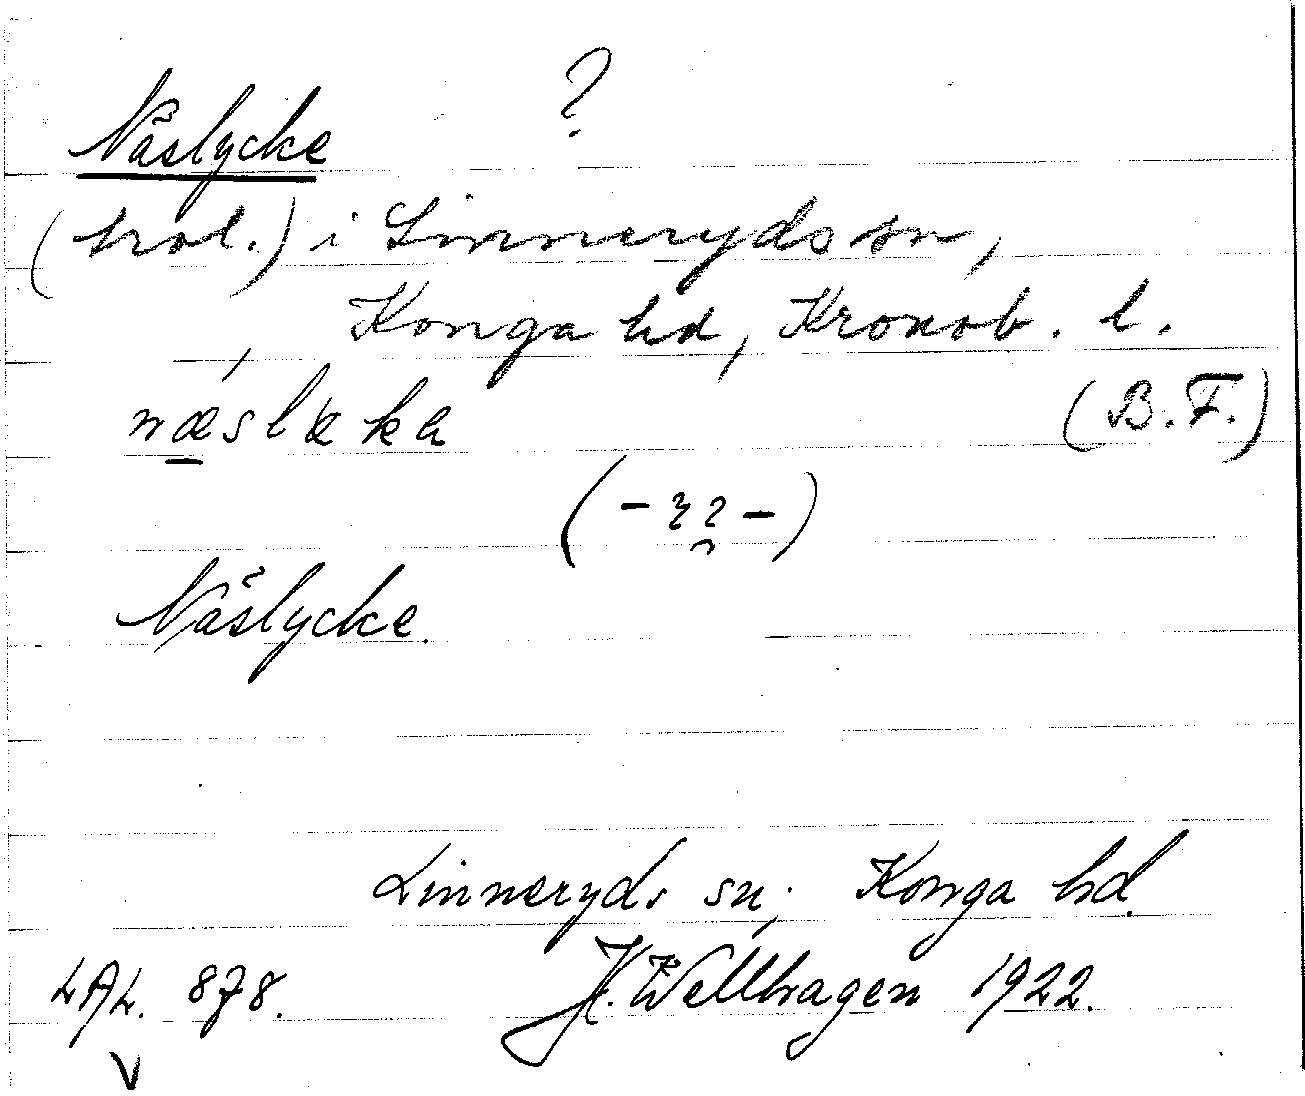 ?
Näslycke
(trol.) i Linneryds sn,
Konga hd, Kronob. l.
næslæka (B.F.)
Näslycke.
Linneryds sn; Konga hd.
LAL. 878. H. Wellhagen 1922.